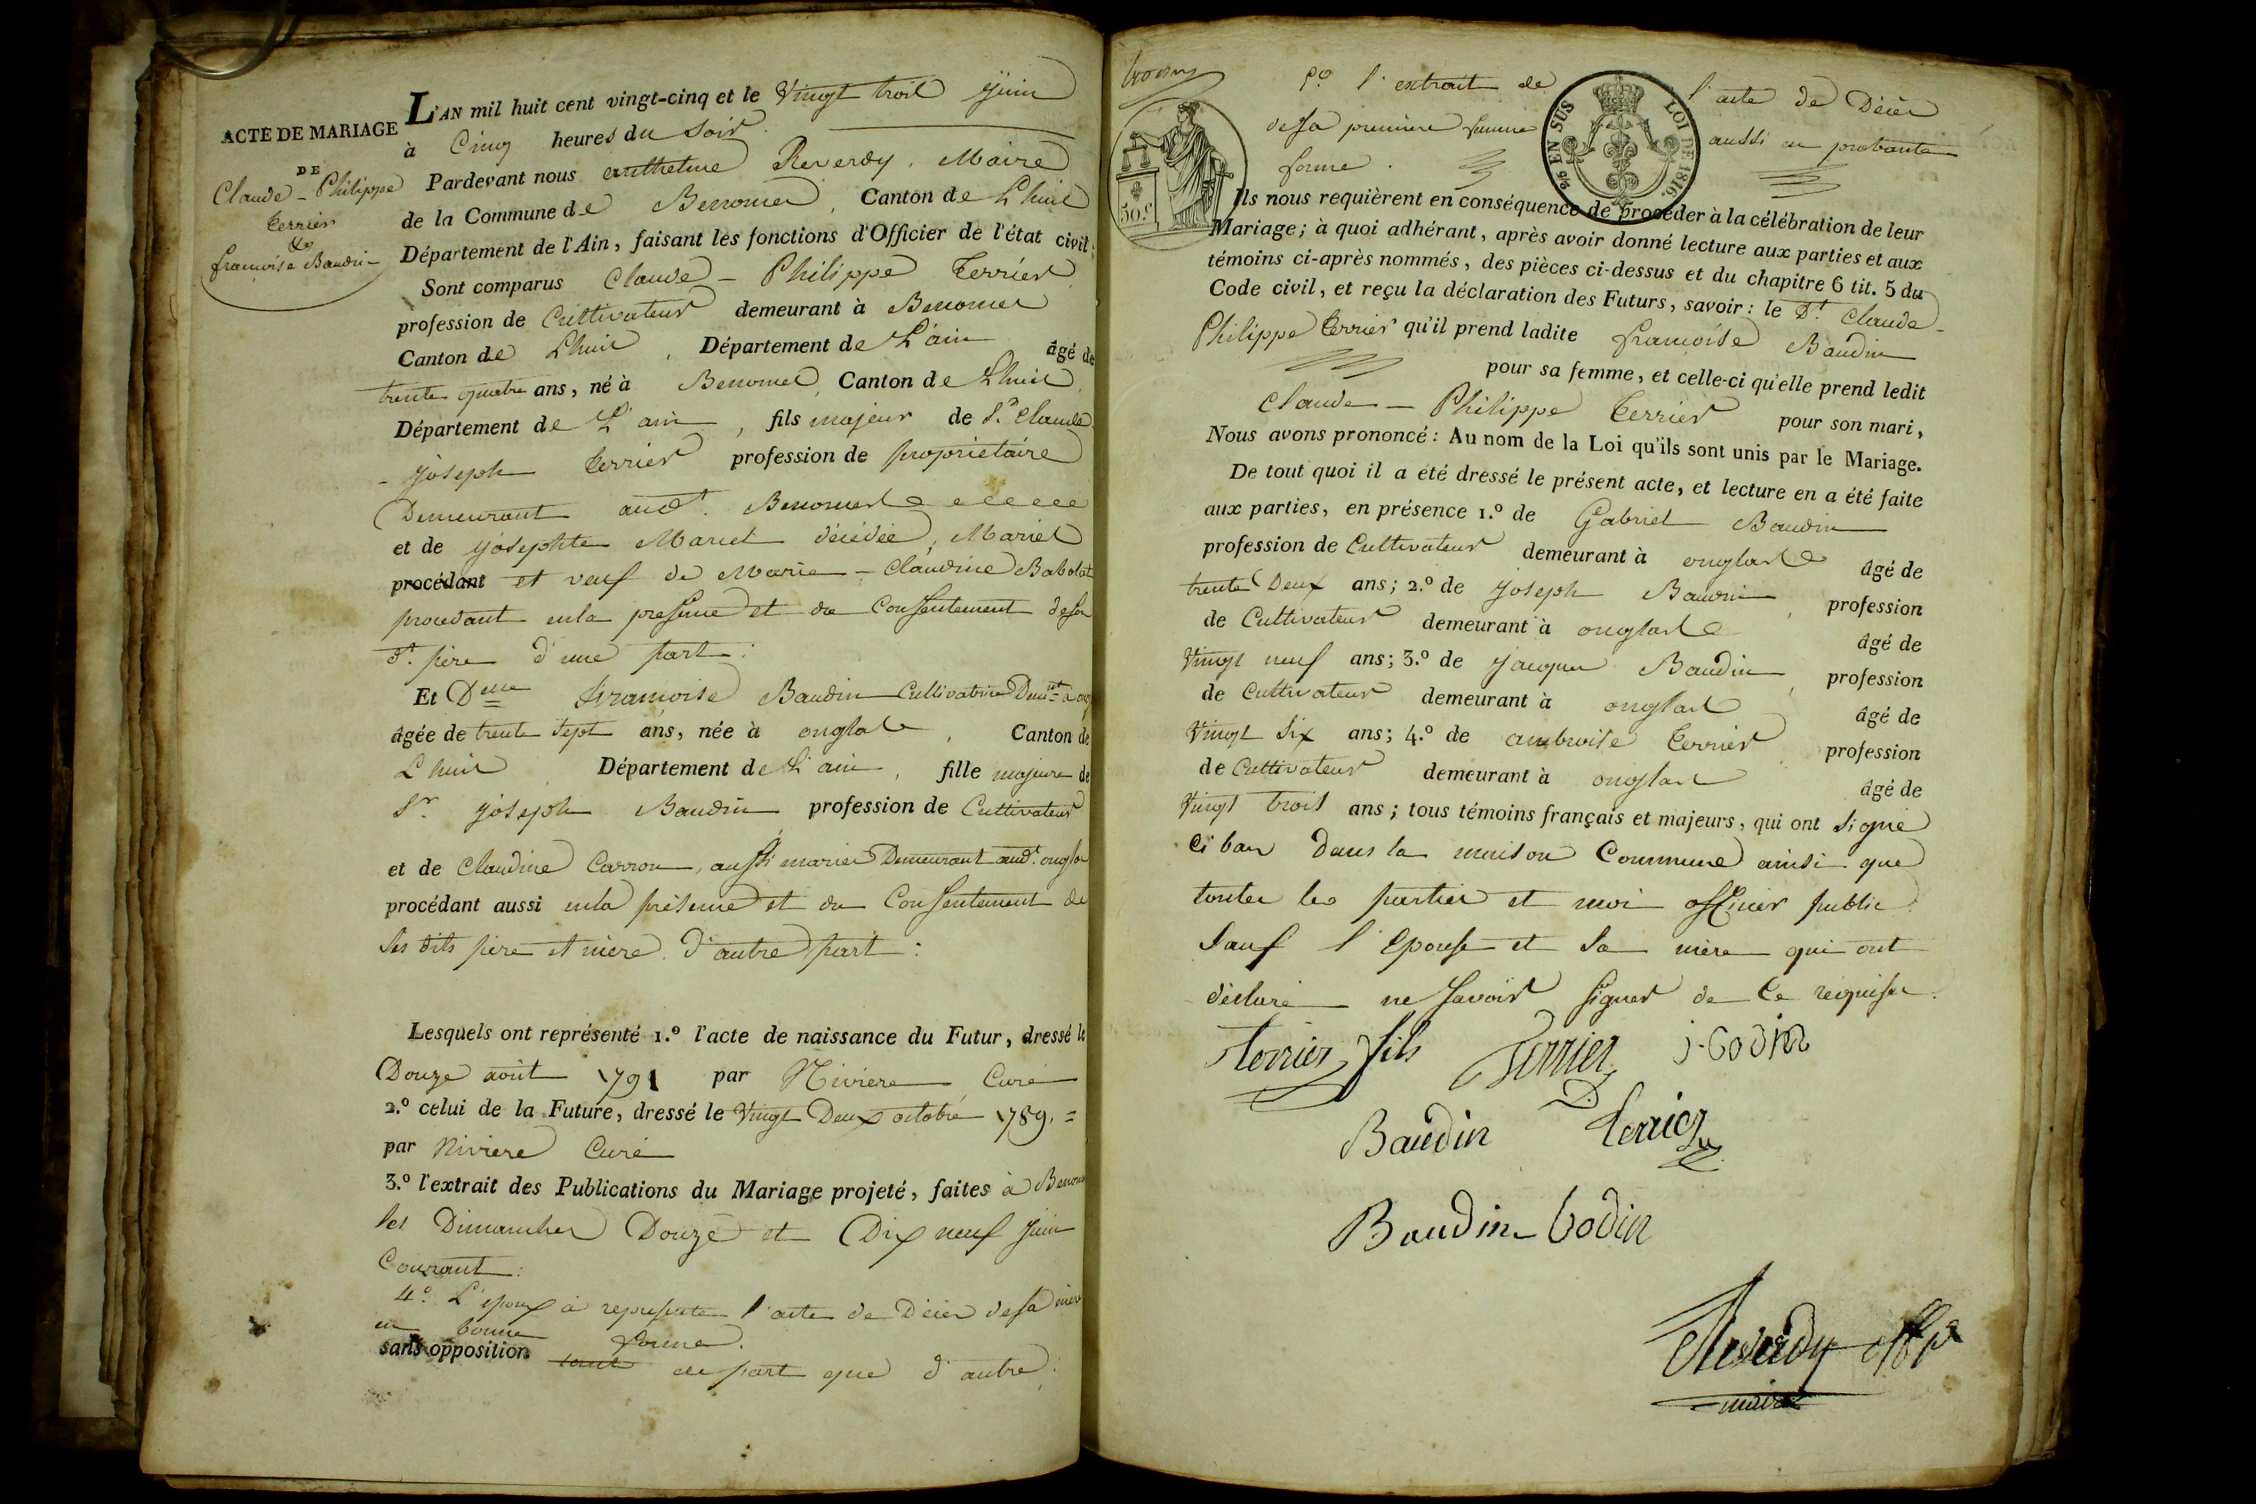 ACTE DE MARIAGE
DE
Claude - Philippe
Terrier
&
françoise Baudin
L'AN mil huit cent vingt-cinq et le Vingt trois juin
à Cinq heures du Soir
Pardevant nous anthelme Reverdy, Maire
de la Commune de Benonce, Canton de Lhuis
Département de l'Ain, faisant les fonctions d'Officier de l'état civil;
Sont comparus Claude - Philippe Terrier
profession de Cultivateur demeurant à Benonce
Canton de Lhuis, Département de L'ain âgé de
trente quatre ans, né à Benonce, Canton de Lhuis,
Département de L'ain, fils majeur de S.r Claude
- joseph Terrier profession de propriétaire
Demeurant aud.t Benonce
et de josephte Marcel décédée, Mariés
procédant et veuf de Marie - Claudine Babolat
procedant en la presence et du Consentement de son
d.t père d'une part :
Et Delle françoise Baudin Cultivatrice Demt à
âgée de trente sept ans, née à onglas, Canton de
Lhuis Département de L'ain, fille majeure de
Sr joseph Baudin profession de Cultivateur
et de Claudine Carron, aussi mariés Demeurant aud.t onglas
procédant aussi en la présence et du Consentement de
ses dits père et mère d'autre part :
Lesquels ont représenté 1.º l'acte de naissance du Futur, dressé le
Douze août 1791 par Nivière Curé
2.º celui de la Future, dressé le Vingt Deux octobre 1789. =
par Nivière Curé
3.º l'extrait des Publications du Mariage projeté, faites à
les Dimanches Douze et Dix neuf juin
Courant :
4.º L'epoux à representé l'acte de Décès de sa mère
en bonne forme.
sans opposition tant de part que d'autre :
5.º l'extrait de l'acte de Décès
de sa première femme aussi en probante
forme.
50.C
EN SUS
LOI DE 1816.
Ils nous requièrent en conséquence de procéder à la célébration de leur
Mariage; à quoi adhérant, après avoir donné lecture aux parties et aux
témoins ci-après nommés, des pièces ci-dessus et du chapitre 6 tit. 5 du
Code civil, et reçu la déclaration des Futurs, savoir: le D.t Claude -
Philippe Terrier qu'il prend ladite françoise Baudin
pour sa femme, et celle-ci qu'elle prend ledit
Claude - Philippe Terrier pour son mari,
Nous avons prononcé: Au nom de la Loi qu'ils sont unis par le Mariage.
De tout quoi il a été dressé le présent acte, et lecture en a été faite
aux parties, en présence 1.º de Gabriel Baudin
profession de Cultivateur demeurant à onglas âgé de
trente Deux ans; 2.º de joseph Baudin, profession
de Cultivateur demeurant à onglas âgé de
Vingt neuf ans; 3.º de jacques Baudin, profession
de Cultivateur demeurant à onglas âgé de
Vingt Six ans; 4.º de ambroise Terrier profession
de Cultivateur demeurant à onglas âgé de
Vingt trois ans; tous témoins français et majeurs, qui ont Signé
Ci bas Dans la maison Commune ainsi que
toutes les parties et moi officier public
Sauf l'Epouse et Sa mère qui ont
déclaré ne Savoir Signer de Ce requises.
Terrier fils Terrier j-Bodin
Baudin Terrier
Baudin Bodin
AReverdy
maire